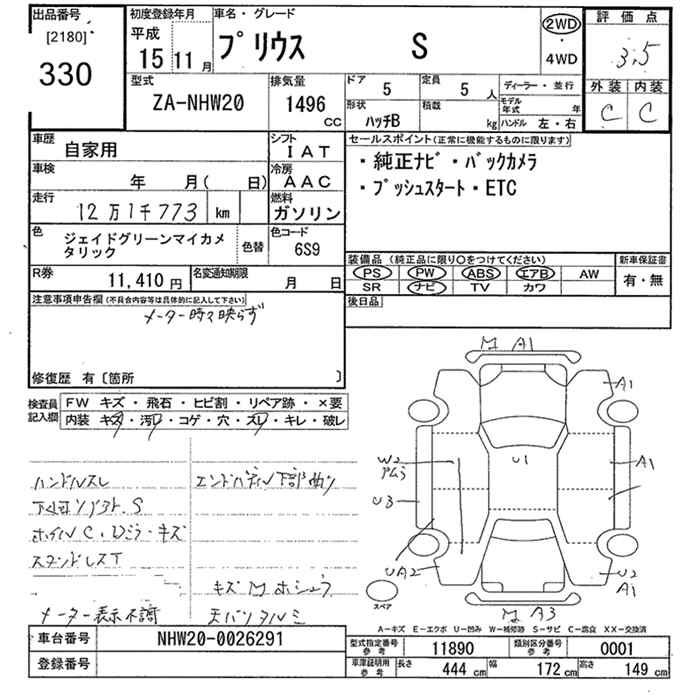 出品番号
[2180]
330
初度登録年月
平成
15 11月
車名・グレード
プリウス S
2WD
・
4WD
評価点
3.5
外装 内装
C C
型式
ZA-NHW20
排気量
1496
CC
ドア 5
定員 5 人
形状 ハッチB
積載 kg
ディーラー・並行
モデル年式 年
ハンドル 左・右
車歴 自家用
シフト IAT
車検 年 月( 日)
冷房 AAC
走行 12万1千773 km
燃料 ガソリン
色 ジェイドグリーンマイカメタリック
色替
色コード 6S9
R券 11,410 円
名変通知期限 月 日
セールスポイント(正常に機能するものに限ります)
・純正ナビ・バックカメラ
・プッシュスタート・ETC
装備品 (純正品に限り○をつけてください)
PS PW ABS エアB AW
SR ナビ TV カワ
新車保証書
有・無
後日品
注意事項申告欄(不具合内容等は具体的に記入して下さい)
メーター時々映らず
修復歴 有〔箇所 〕
検査員記入欄
FW キズ・飛石・ヒビ割・リペア跡・×要
内装 キズ・汚レ・コゲ・穴・スレ・キレ・破レ
ハンドルスレ
ホイルC、Dミラーキズ
メーター表示不調
エンドパネル下部曲り
M A1
A1
U1
W2
A1
U3
UA2
U2
A1
M A3
スペア
A-キズ E-エクボ U-凹み W-補修跡 S-サビ C-腐食 XX-交換済
車台番号 NHW20-0026291
登録番号
型式指定番号 参考 11890
類別区分番号 参考 0001
車庫証明用 参考
長さ 444 cm
幅 172 cm
高さ 149 cm